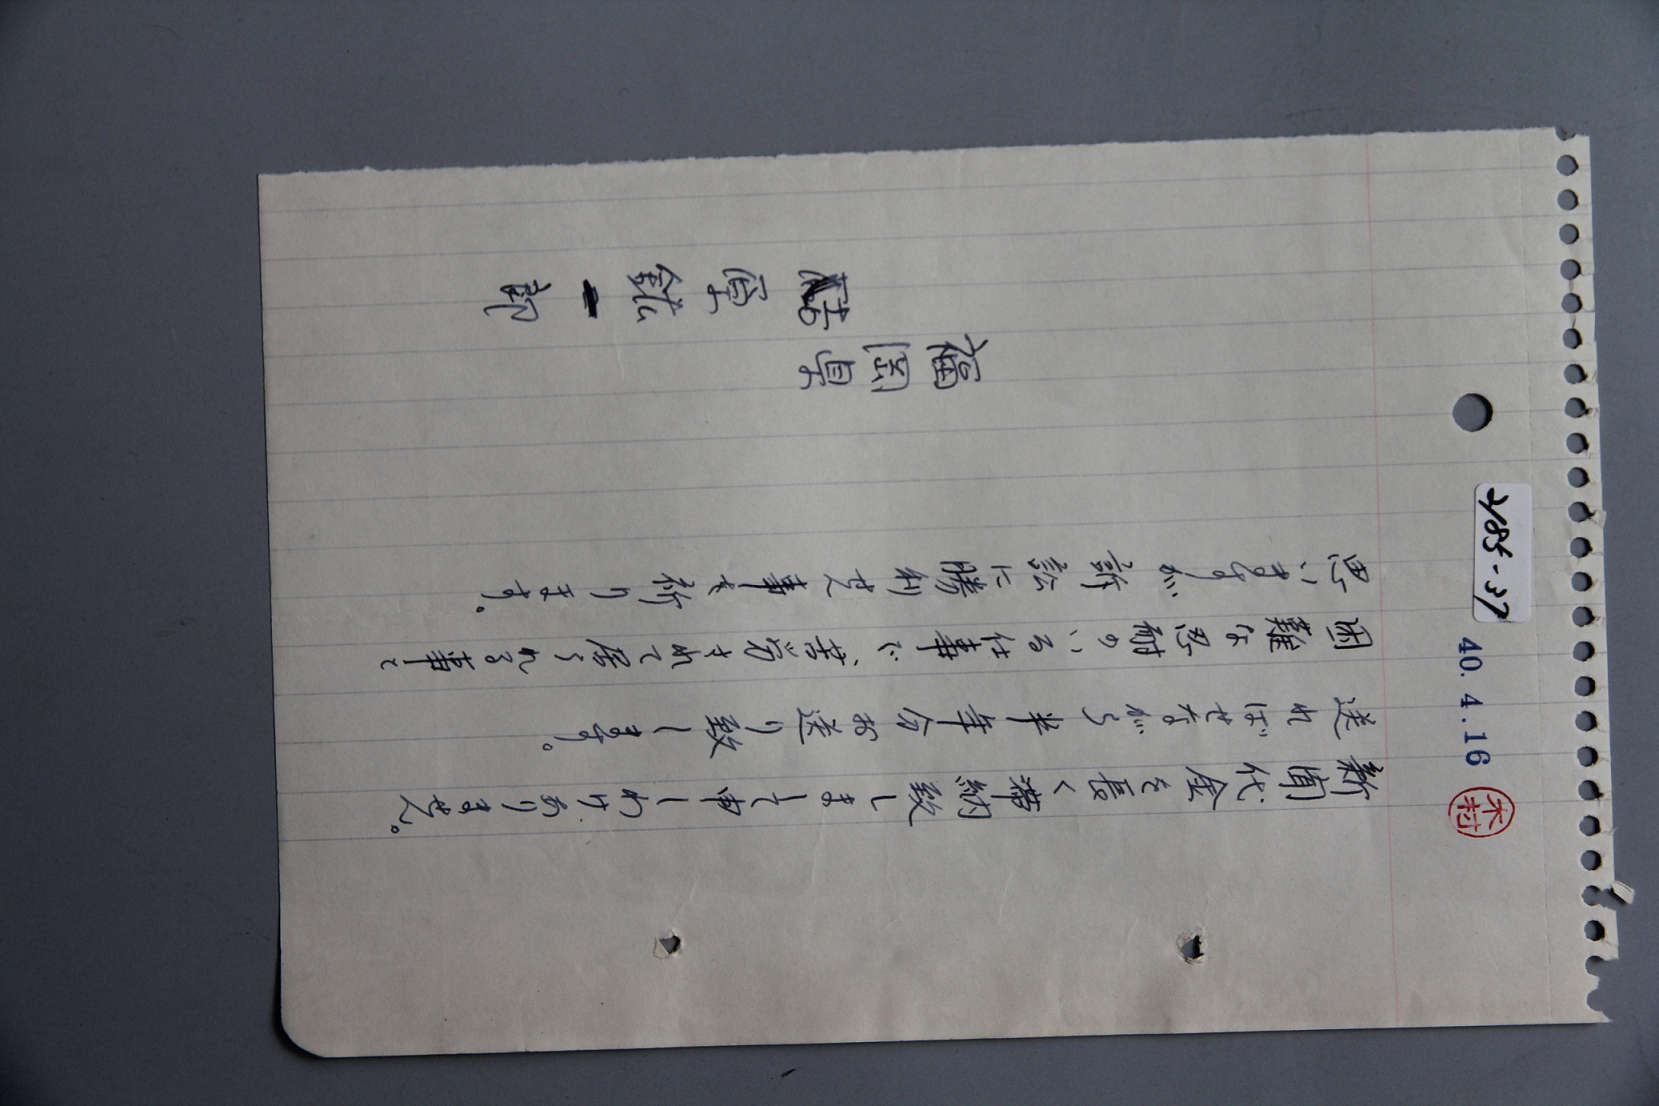 2185-37
40.4.16
木村
新聞代金を長く滞納致しまして申しわけありません。
送ればせながら半年分お送り致します。
困難な忍耐のいる仕事で、苦労されて居られる事と
思いますが訴訟に勝利せん事を祈ります。
福岡県
一郎